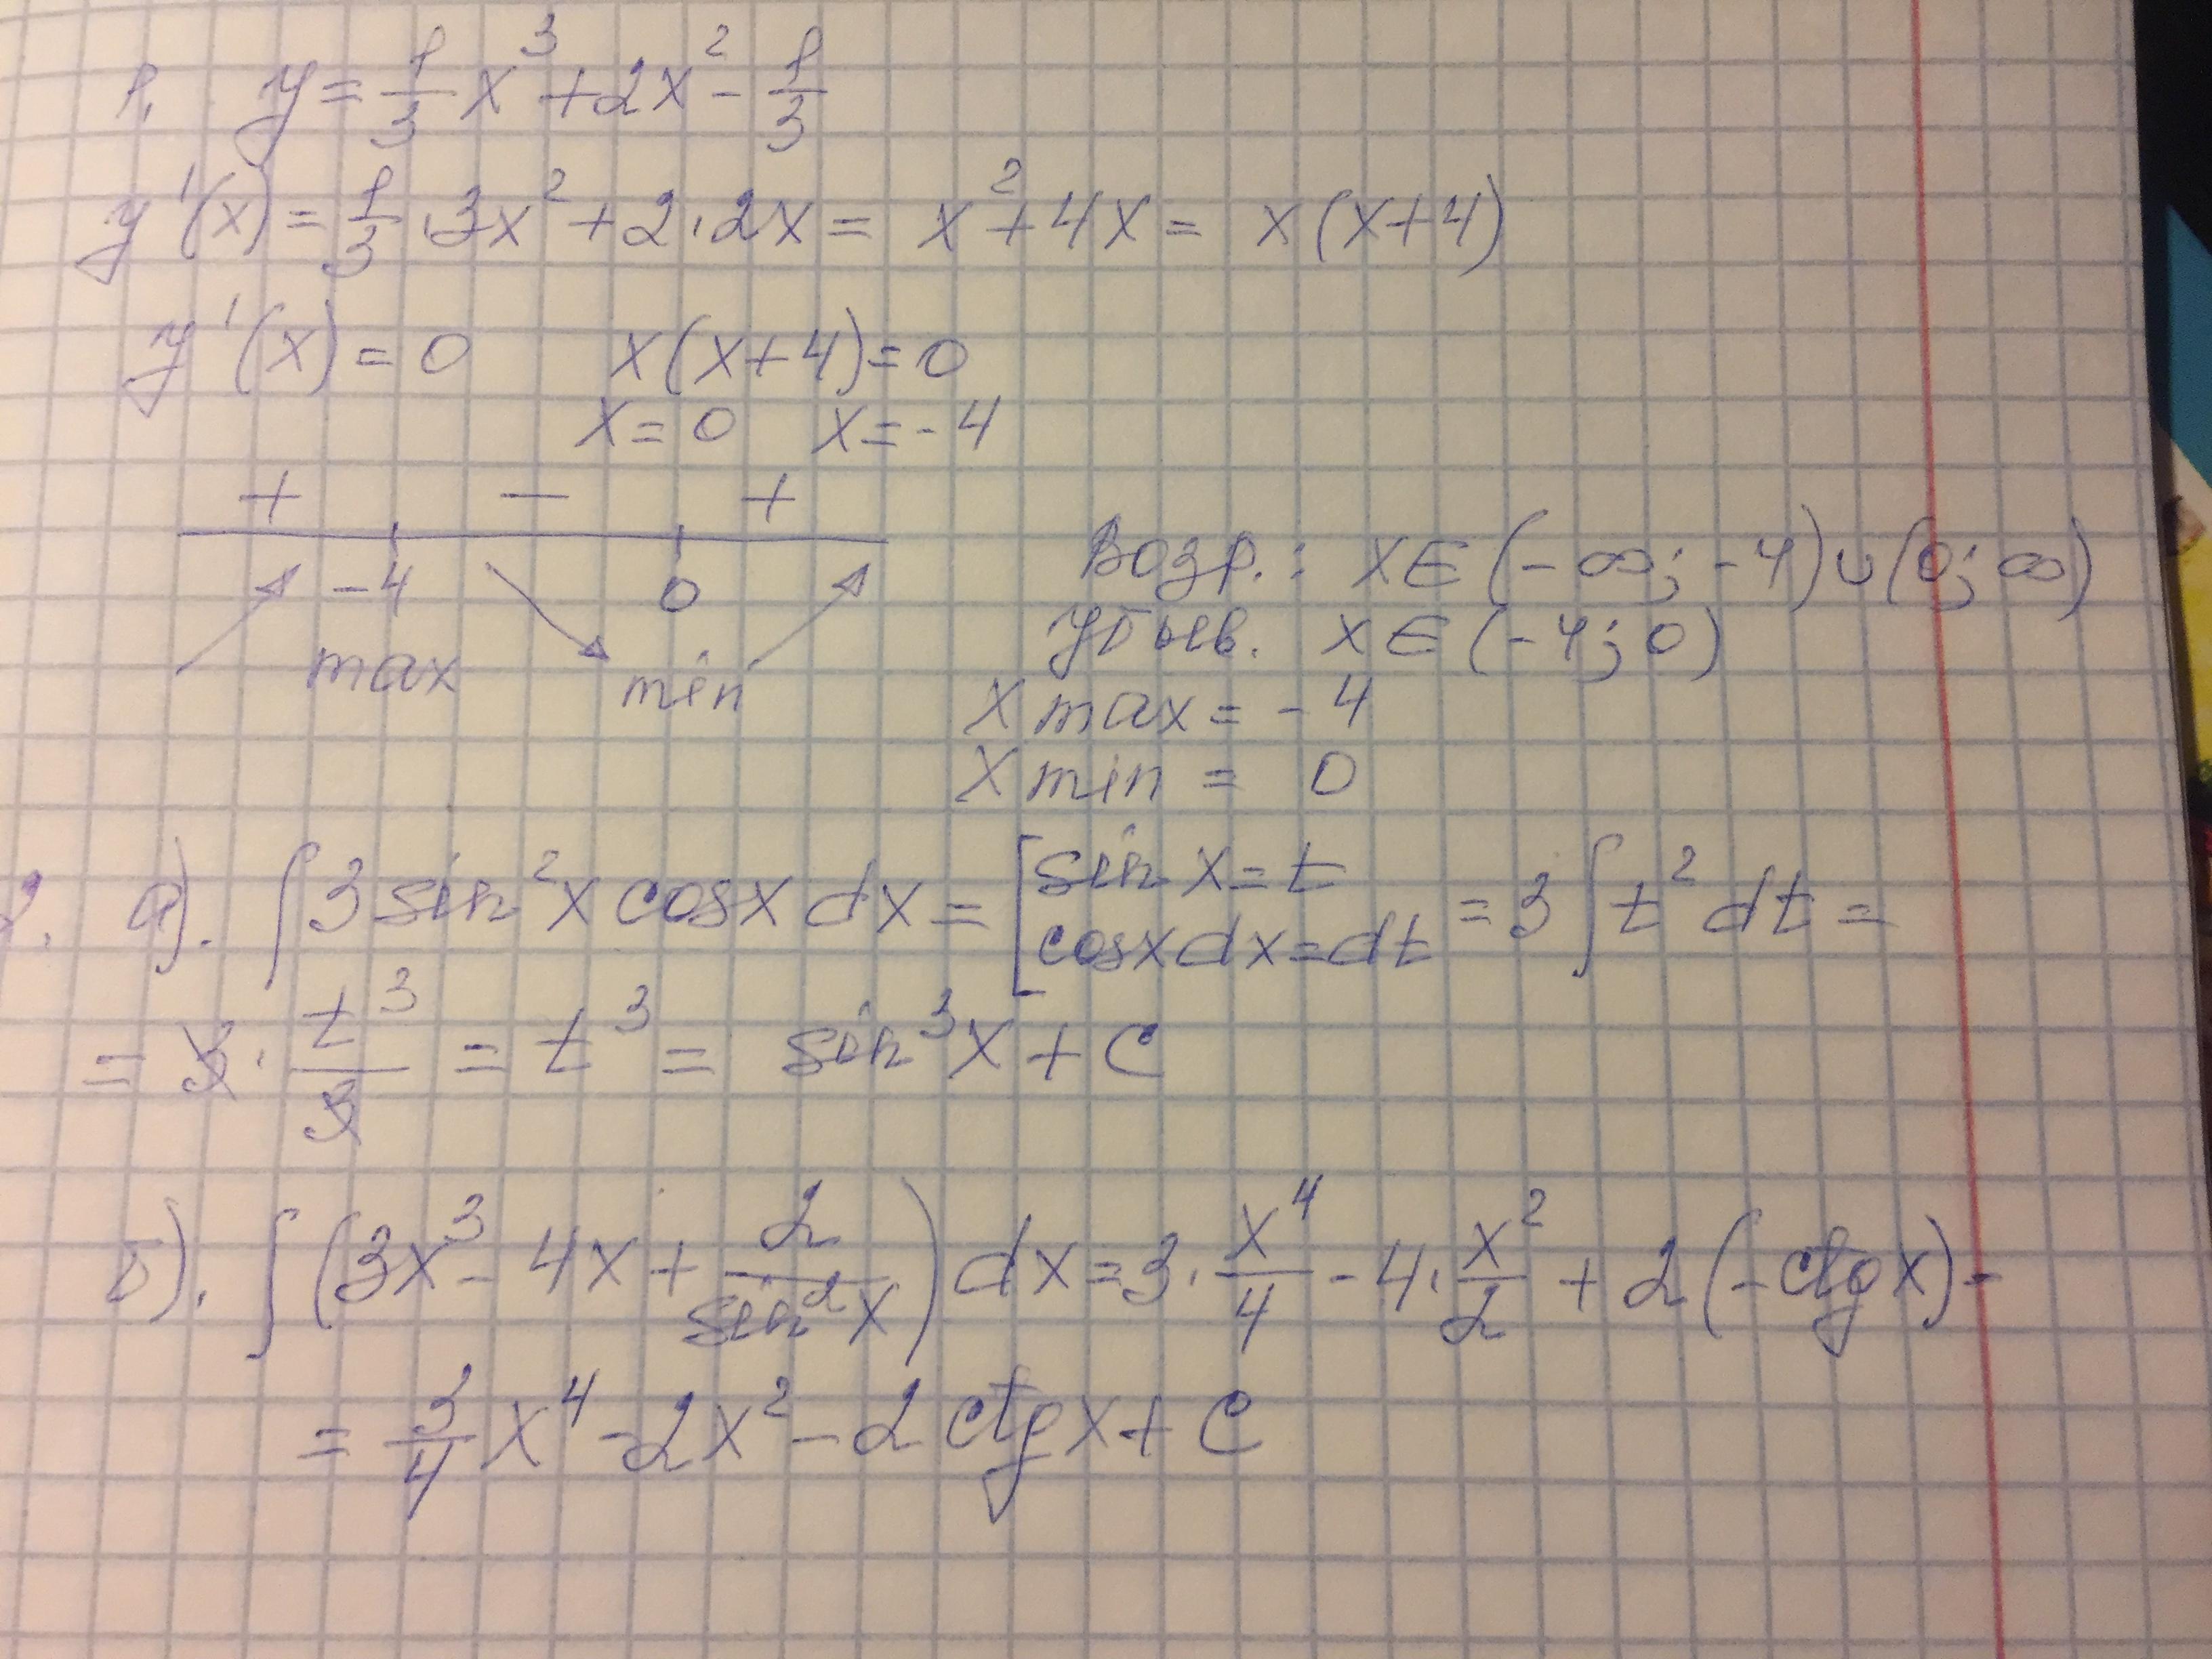 1. y = 1/3 x³ + 2x² - 1/3
y'(x) = 1/3 · 3x² + 2 · 2x = x² + 4x = x(x+4)
y'(x) = 0 x(x+4) = 0
x = 0 x = -4
+ − +
-4 0
max min
Возр.: x∈(-∞; -4)∪(0; ∞)
Убыв. x∈(-4; 0)
x max = -4
x min = 0
2. а). ∫3 sin²x cosx dx = [sin x = t
cosx dx = dt = 3∫t² dt =
= 3 · t³/3 = t³ = sin³x + C
б). ∫(3x³ - 4x + 2/sin²x) dx = 3 · x⁴/4 - 4 · x²/2 + 2(-ctg x) -
= 3/4 x⁴ - 2x² - 2 ctg x + C